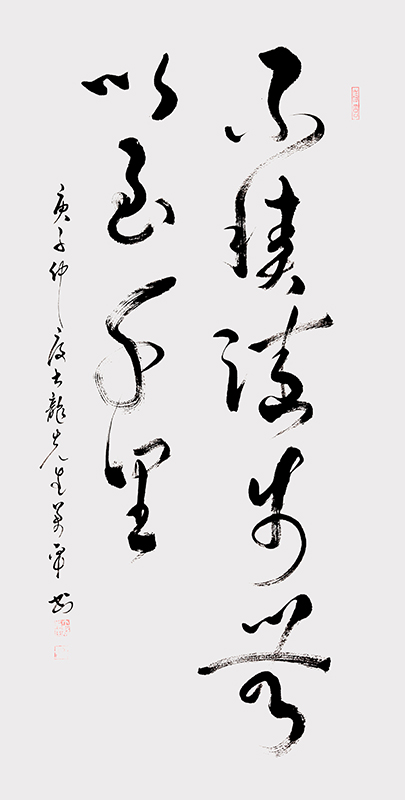 不積跬步無
以至千里
庚子仲夏龍先生軍书